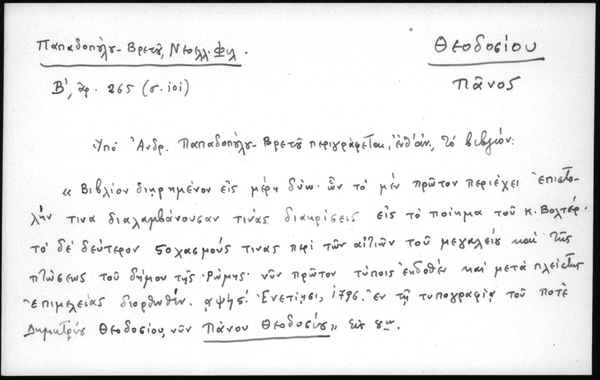 Παπαδοπούλου-Βρετοῦ, Νεοελλ. Φιλ.
Θεοδοσίου
Πάνος
Β', ἀρ. 265 (σ. 101)
Ὑπὸ Ἀνδρ. Παπαδοπούλου-Βρετοῦ περιγράφεται, τὸ βιβλίον:
«Βιβλίον διῃρημένον εἰς μέρη δύω· ὧν τὸ μὲν πρῶτον περιέχει ἐπιστο-
λήν τινα διαλαμβάνουσαν τινὰς διακρίσεις εἰς τὸ ποίημα τοῦ κ. Βολτέρ·
τὸ δὲ δεύτερον στοχασμούς τινας περὶ τῶν αἰτιῶν τοῦ μεγαλείου καὶ τῆς
πτώσεως τοῦ δήμου τῆς Ῥώμης· νῦν πρῶτον τύποις ἐκδοθὲν καὶ μετὰ πλείστης
ἐπιμελείας διορθωθέν. ͵αψϟϛ'. Ἐνετίησι, 1796. Ἐν τῇ τυπογραφίᾳ τοῦ ποτὲ
Δημητρίου Θεοδοσίου, νῦν Πάνου Θεοδοσίου» εἰς 8ον.